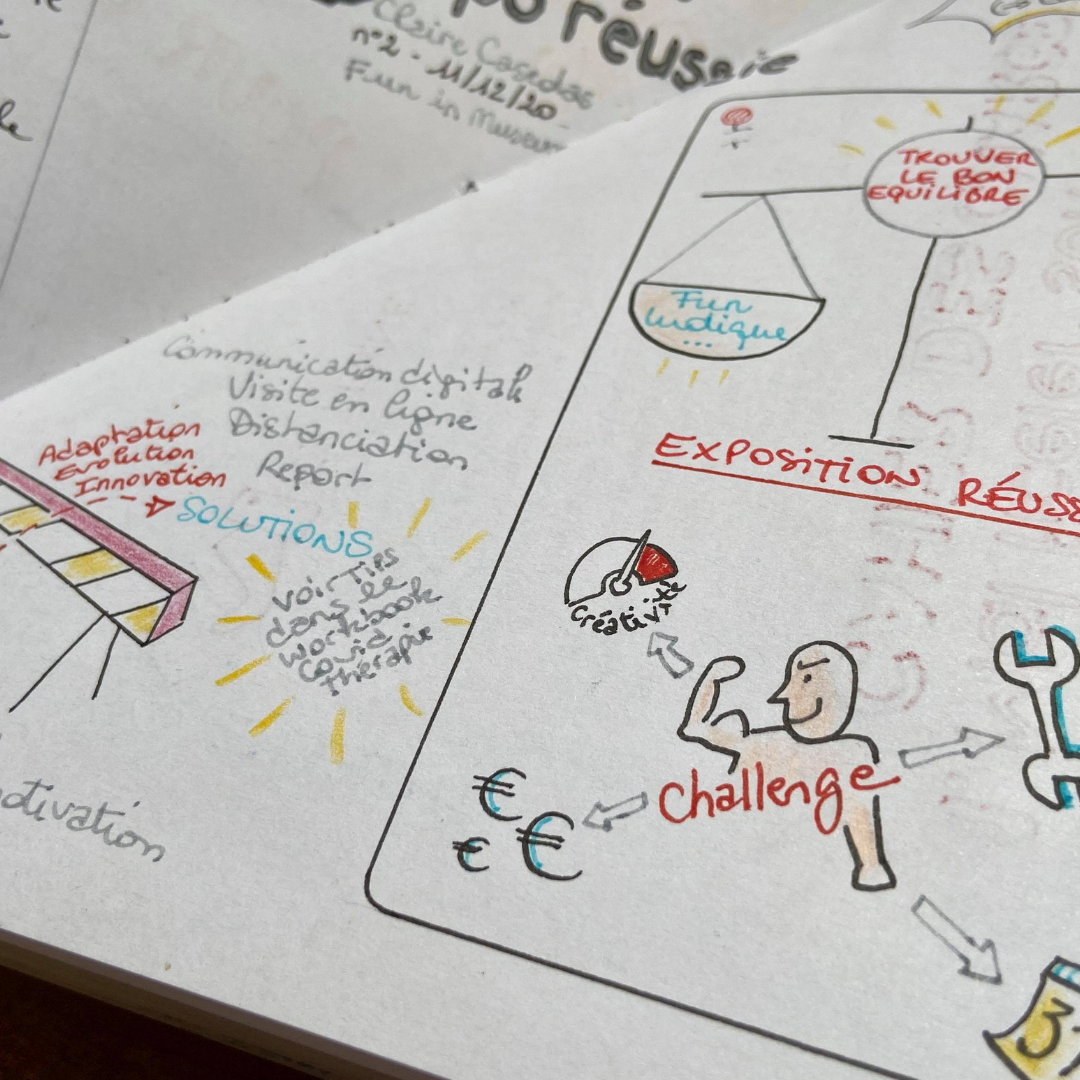 réussie
Claire Casedas
n°2 - 11/12/20
Fun in Museum
TROUVER
LE BON
EQUILIBRE
Fun
ludique
...
Communication digitale
Visite en ligne
Distanciation
Report
Adaptation
Evolution
Innovation
SOLUTIONS
Voir Tips
dans le
workbook
Covid
thérapie
EXPOSITION RÉUSS
Créativité
Challenge
€ €
€
otivation
31